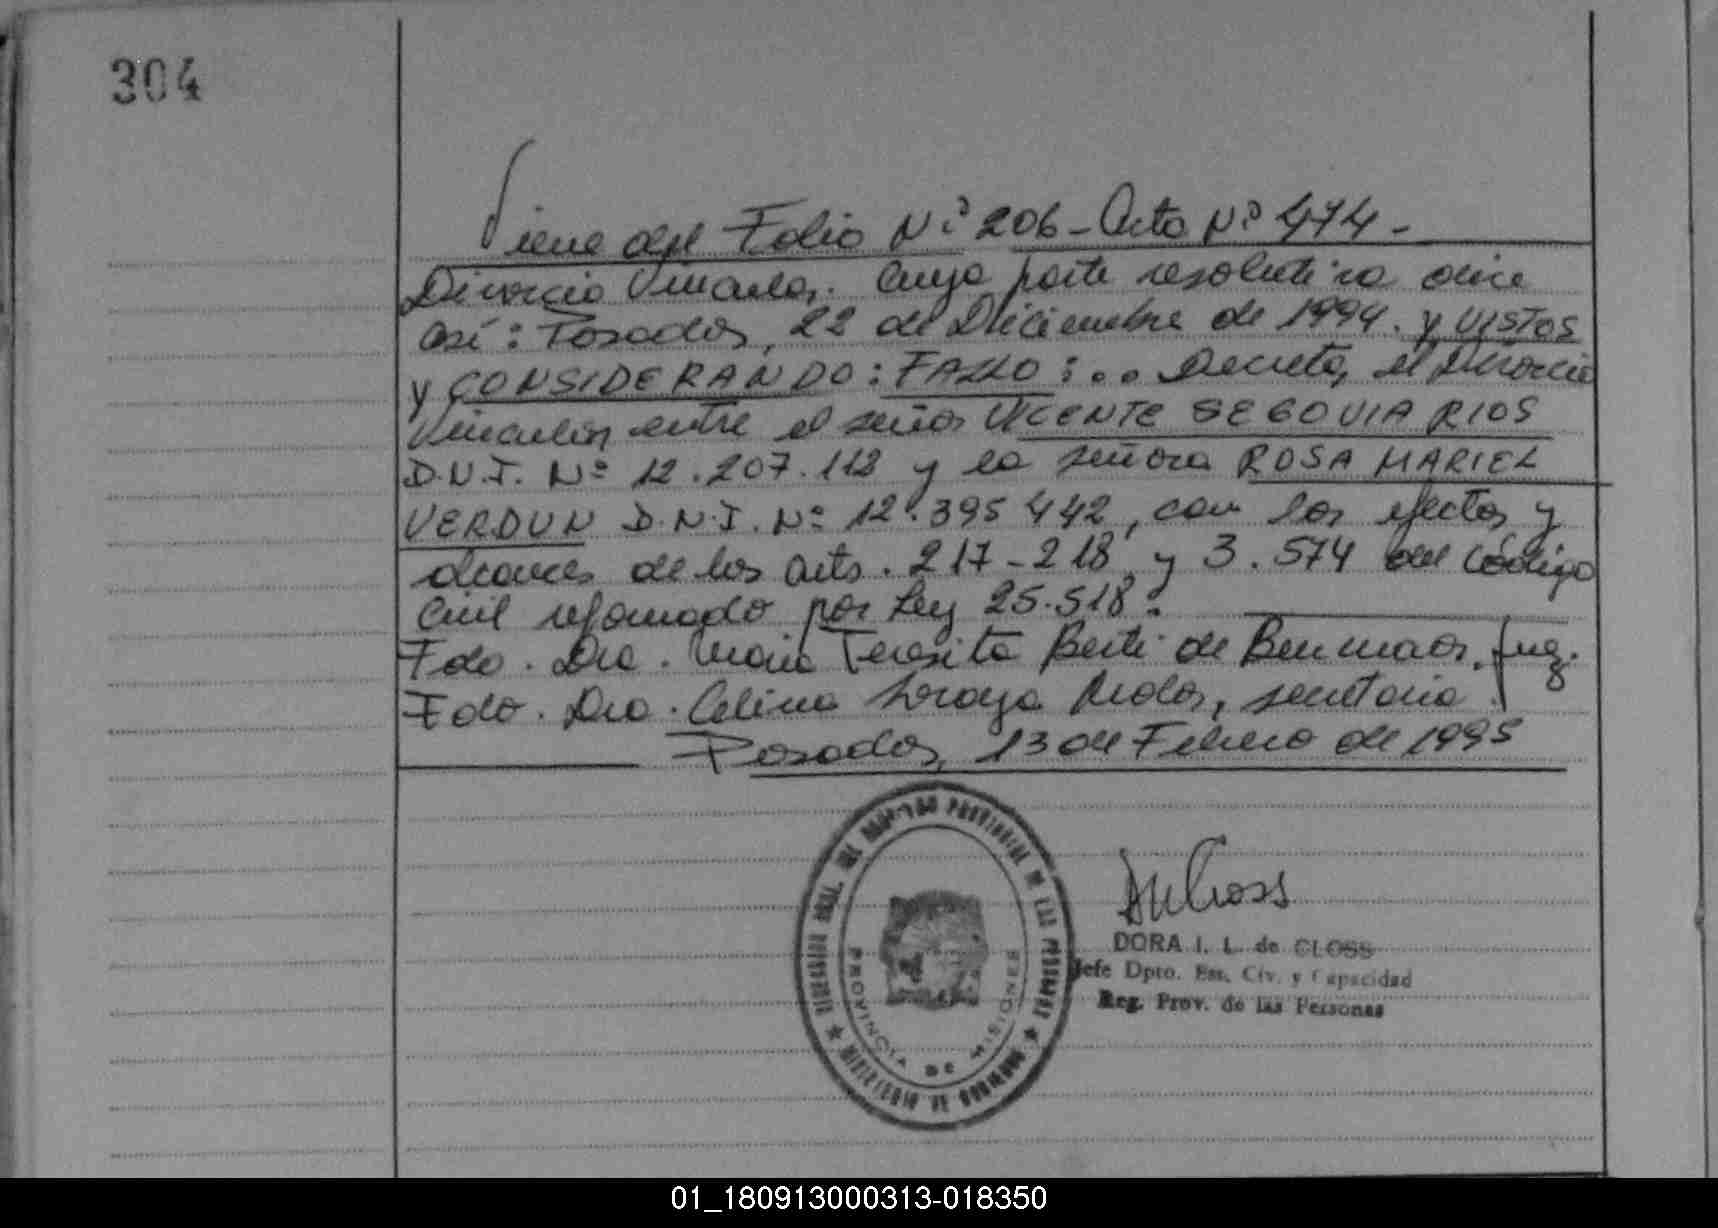 304
Viene del Folio Nº 206 - Acta Nº 474 -
Divorcio Vincular. Cuya parte resolutiva dice
así: Posadas, 22 de Diciembre de 1994. y VISTOS
y CONSIDERANDO: FALLO: .. Decretar, el Divorcio
Vincular entre el señor VICENTE SEGOVIA RIOS
D.N.I. Nº 12.207.112 y la señora ROSA MARIEL
VERDUN D.N.I. Nº 12.395 442, con los efectos y
alcances de los arts. 217 - 218 y 3.574 del Código
Civil reformado por Ley 25.518.
Fdo. Dra. María Teresita Berti de Juez.
Fdo. Dra. Celina Soraya secretaria.
Posadas, 13 de Febrero de 1995
REGISTRO PROVINCIAL DE LAS PERSONAS
PROVINCIA DE MISIONES
DORA I. L. de CLOSS
Jefe Dpto. Est. Civ. y Capacidad
Reg. Prov. de las Personas
01_180913000313-018350